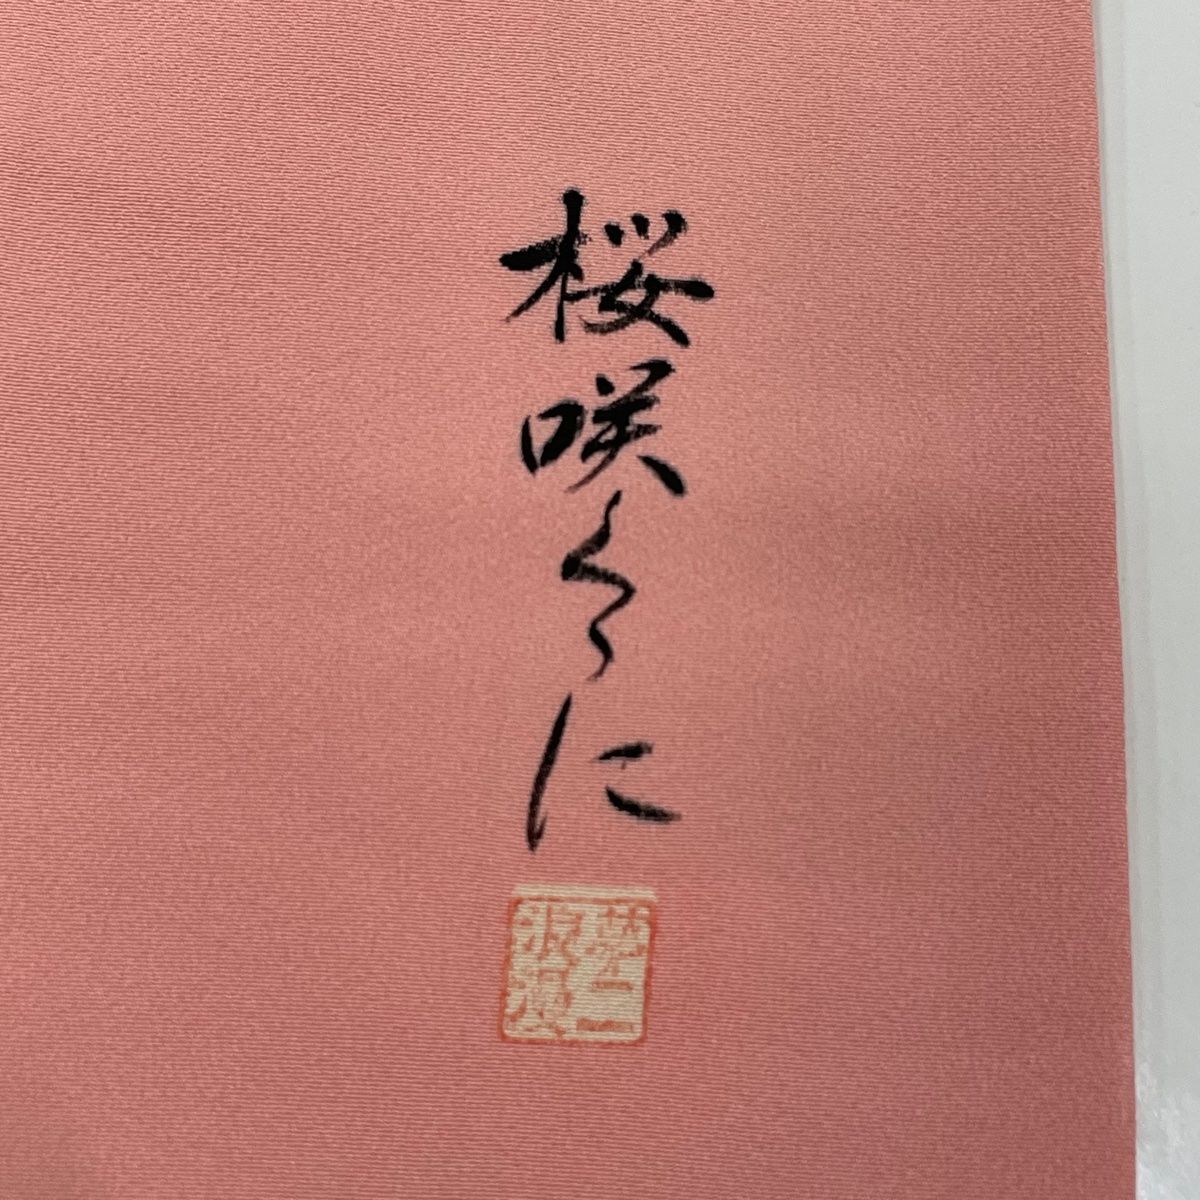 桜咲くに